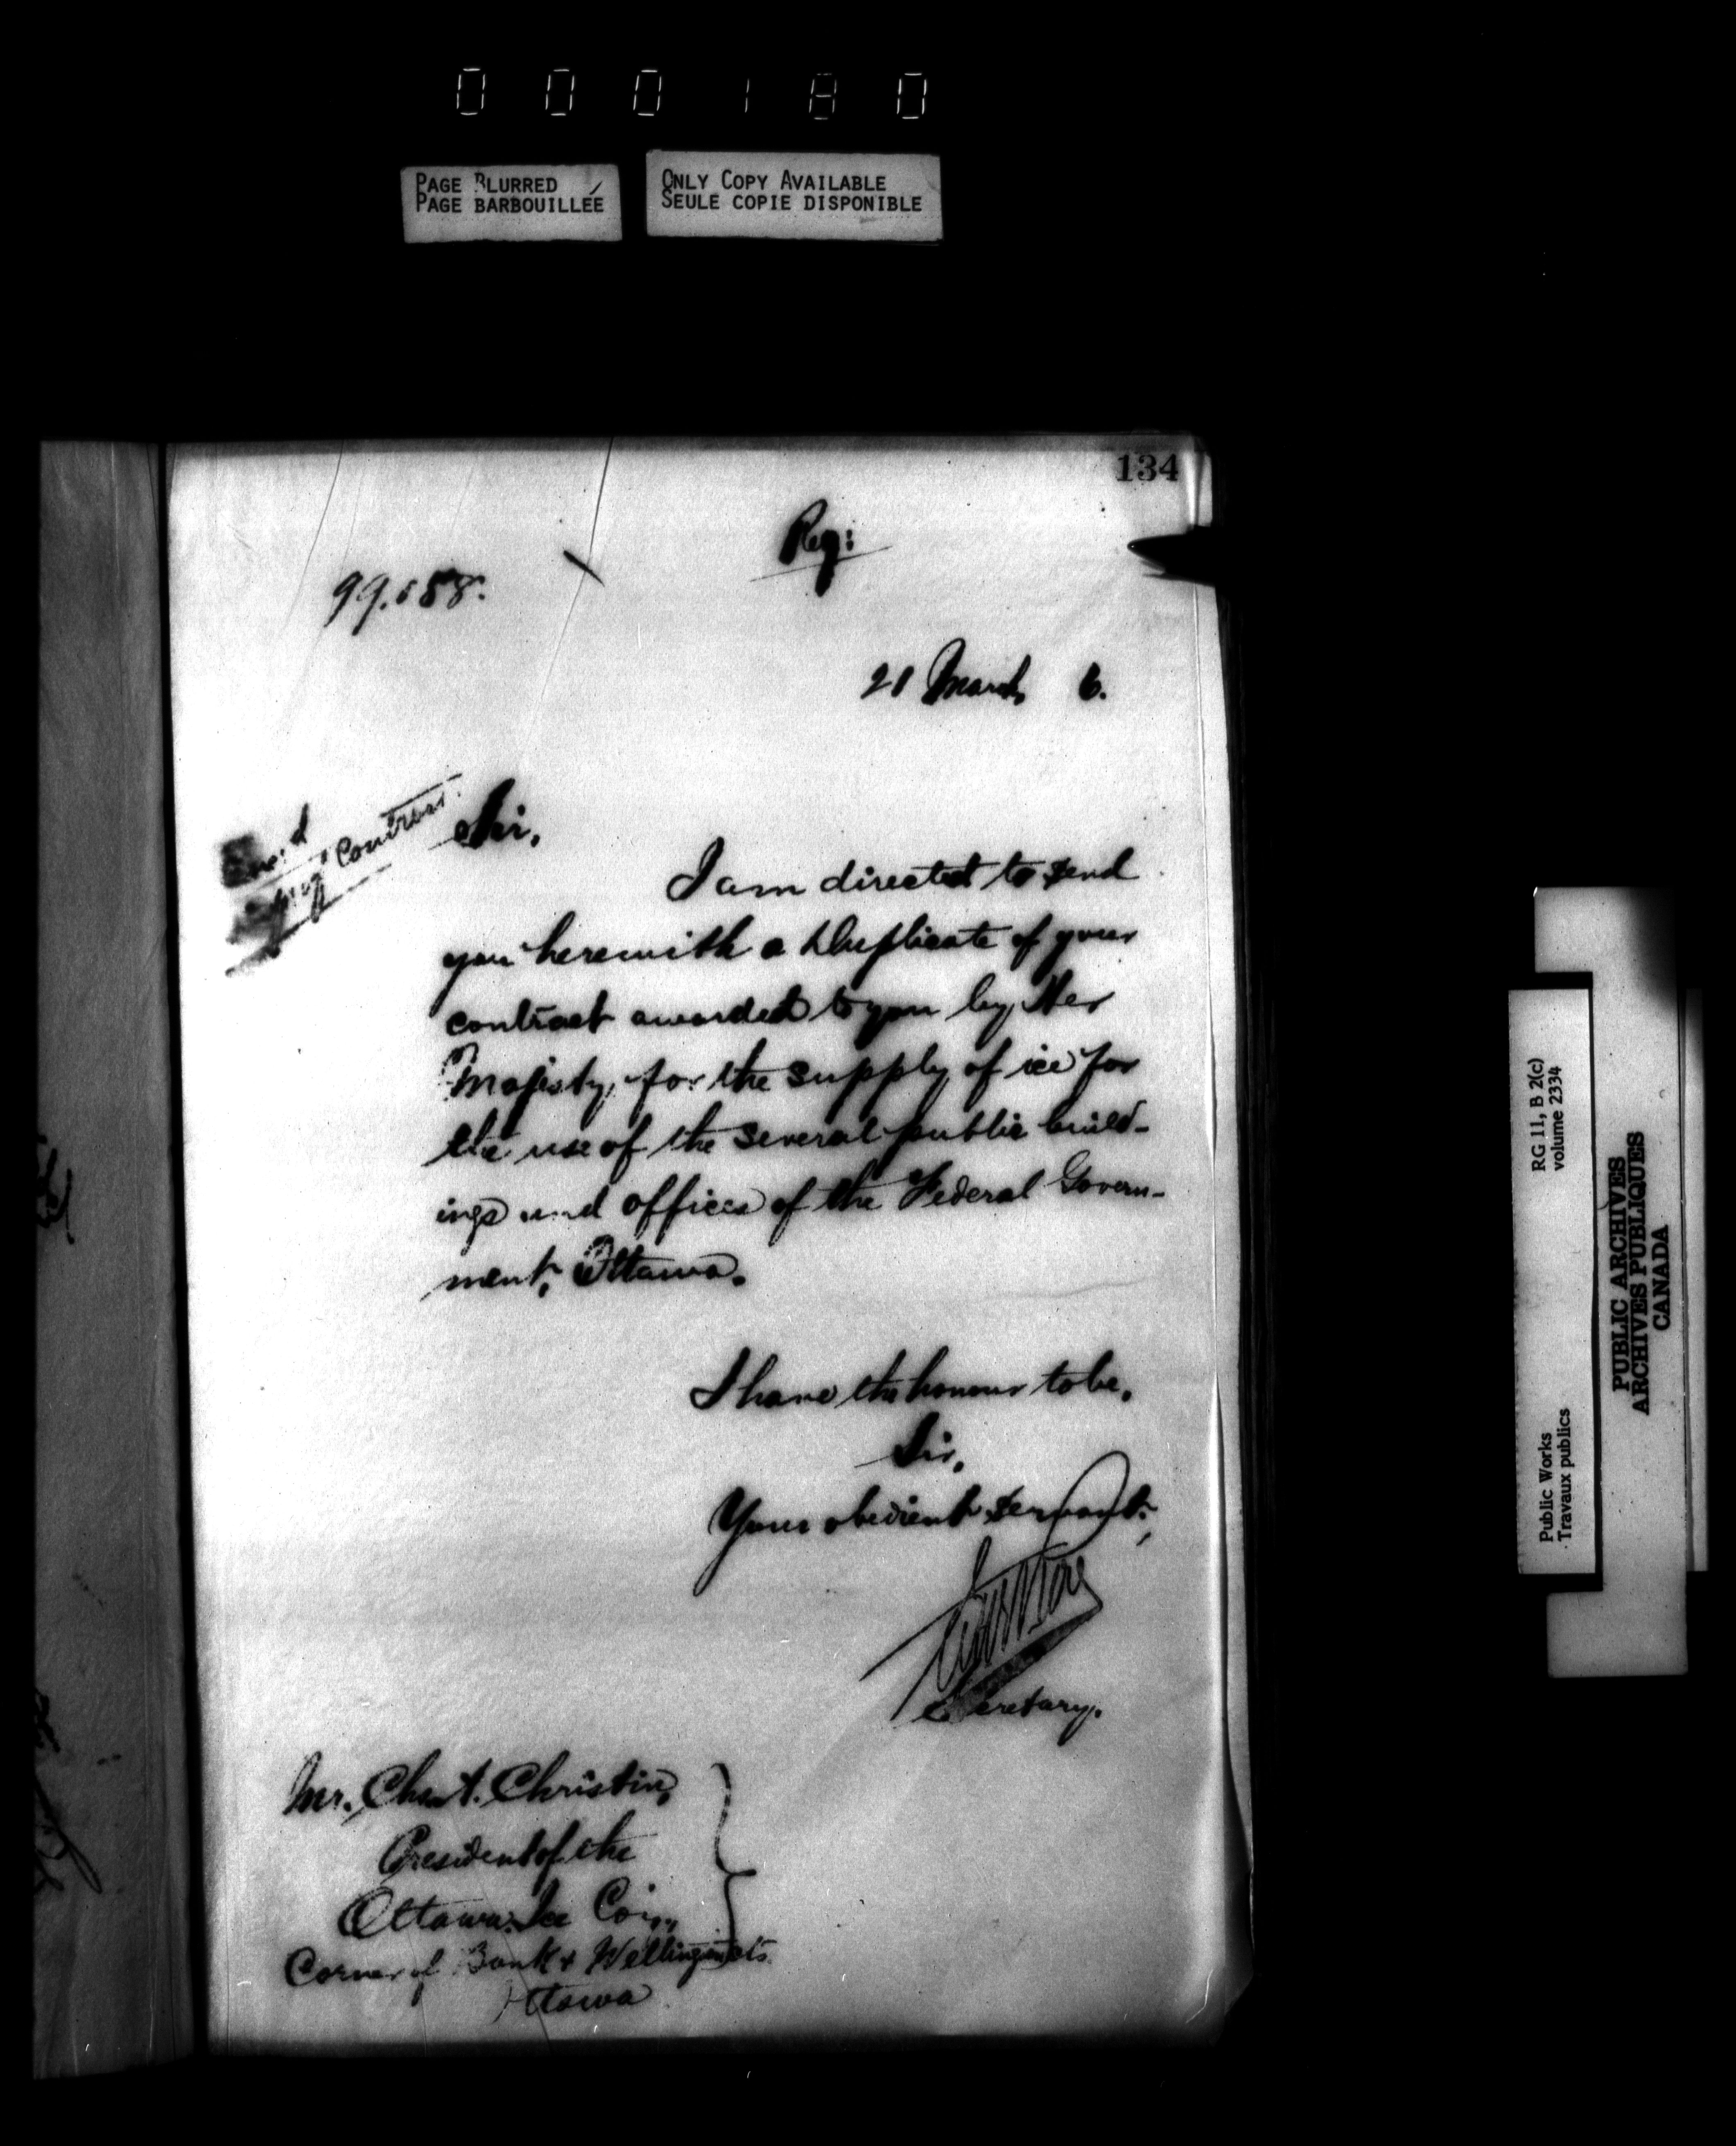 000180
PAGE BLURRED
PAGE BARBOUILLÉE
ONLY COPY AVAILABLE
SEULE COPIE DISPONIBLE
134
Reg:
21 March 6.
Contract
Sir,
I am directed to send
you herewith a Duplicate of your
contract awarded to you by Her
Majesty, for the supply of ice for
the use of the several public build-
ings and offices of the Federal Govern-
ment, Ottawa.
I have the honour to be,
Sir,
Your obedient servant,
Secretary.
Mr. Christin,
President of the
Ottawa Ice Coy,,
Corner of Bank & Wellington sts
Ottawa
RG 11, B 2(c)
volume 2334
Public Works
Travaux publics
PUBLIC ARCHIVES
ARCHIVES PUBLIQUES
CANADA